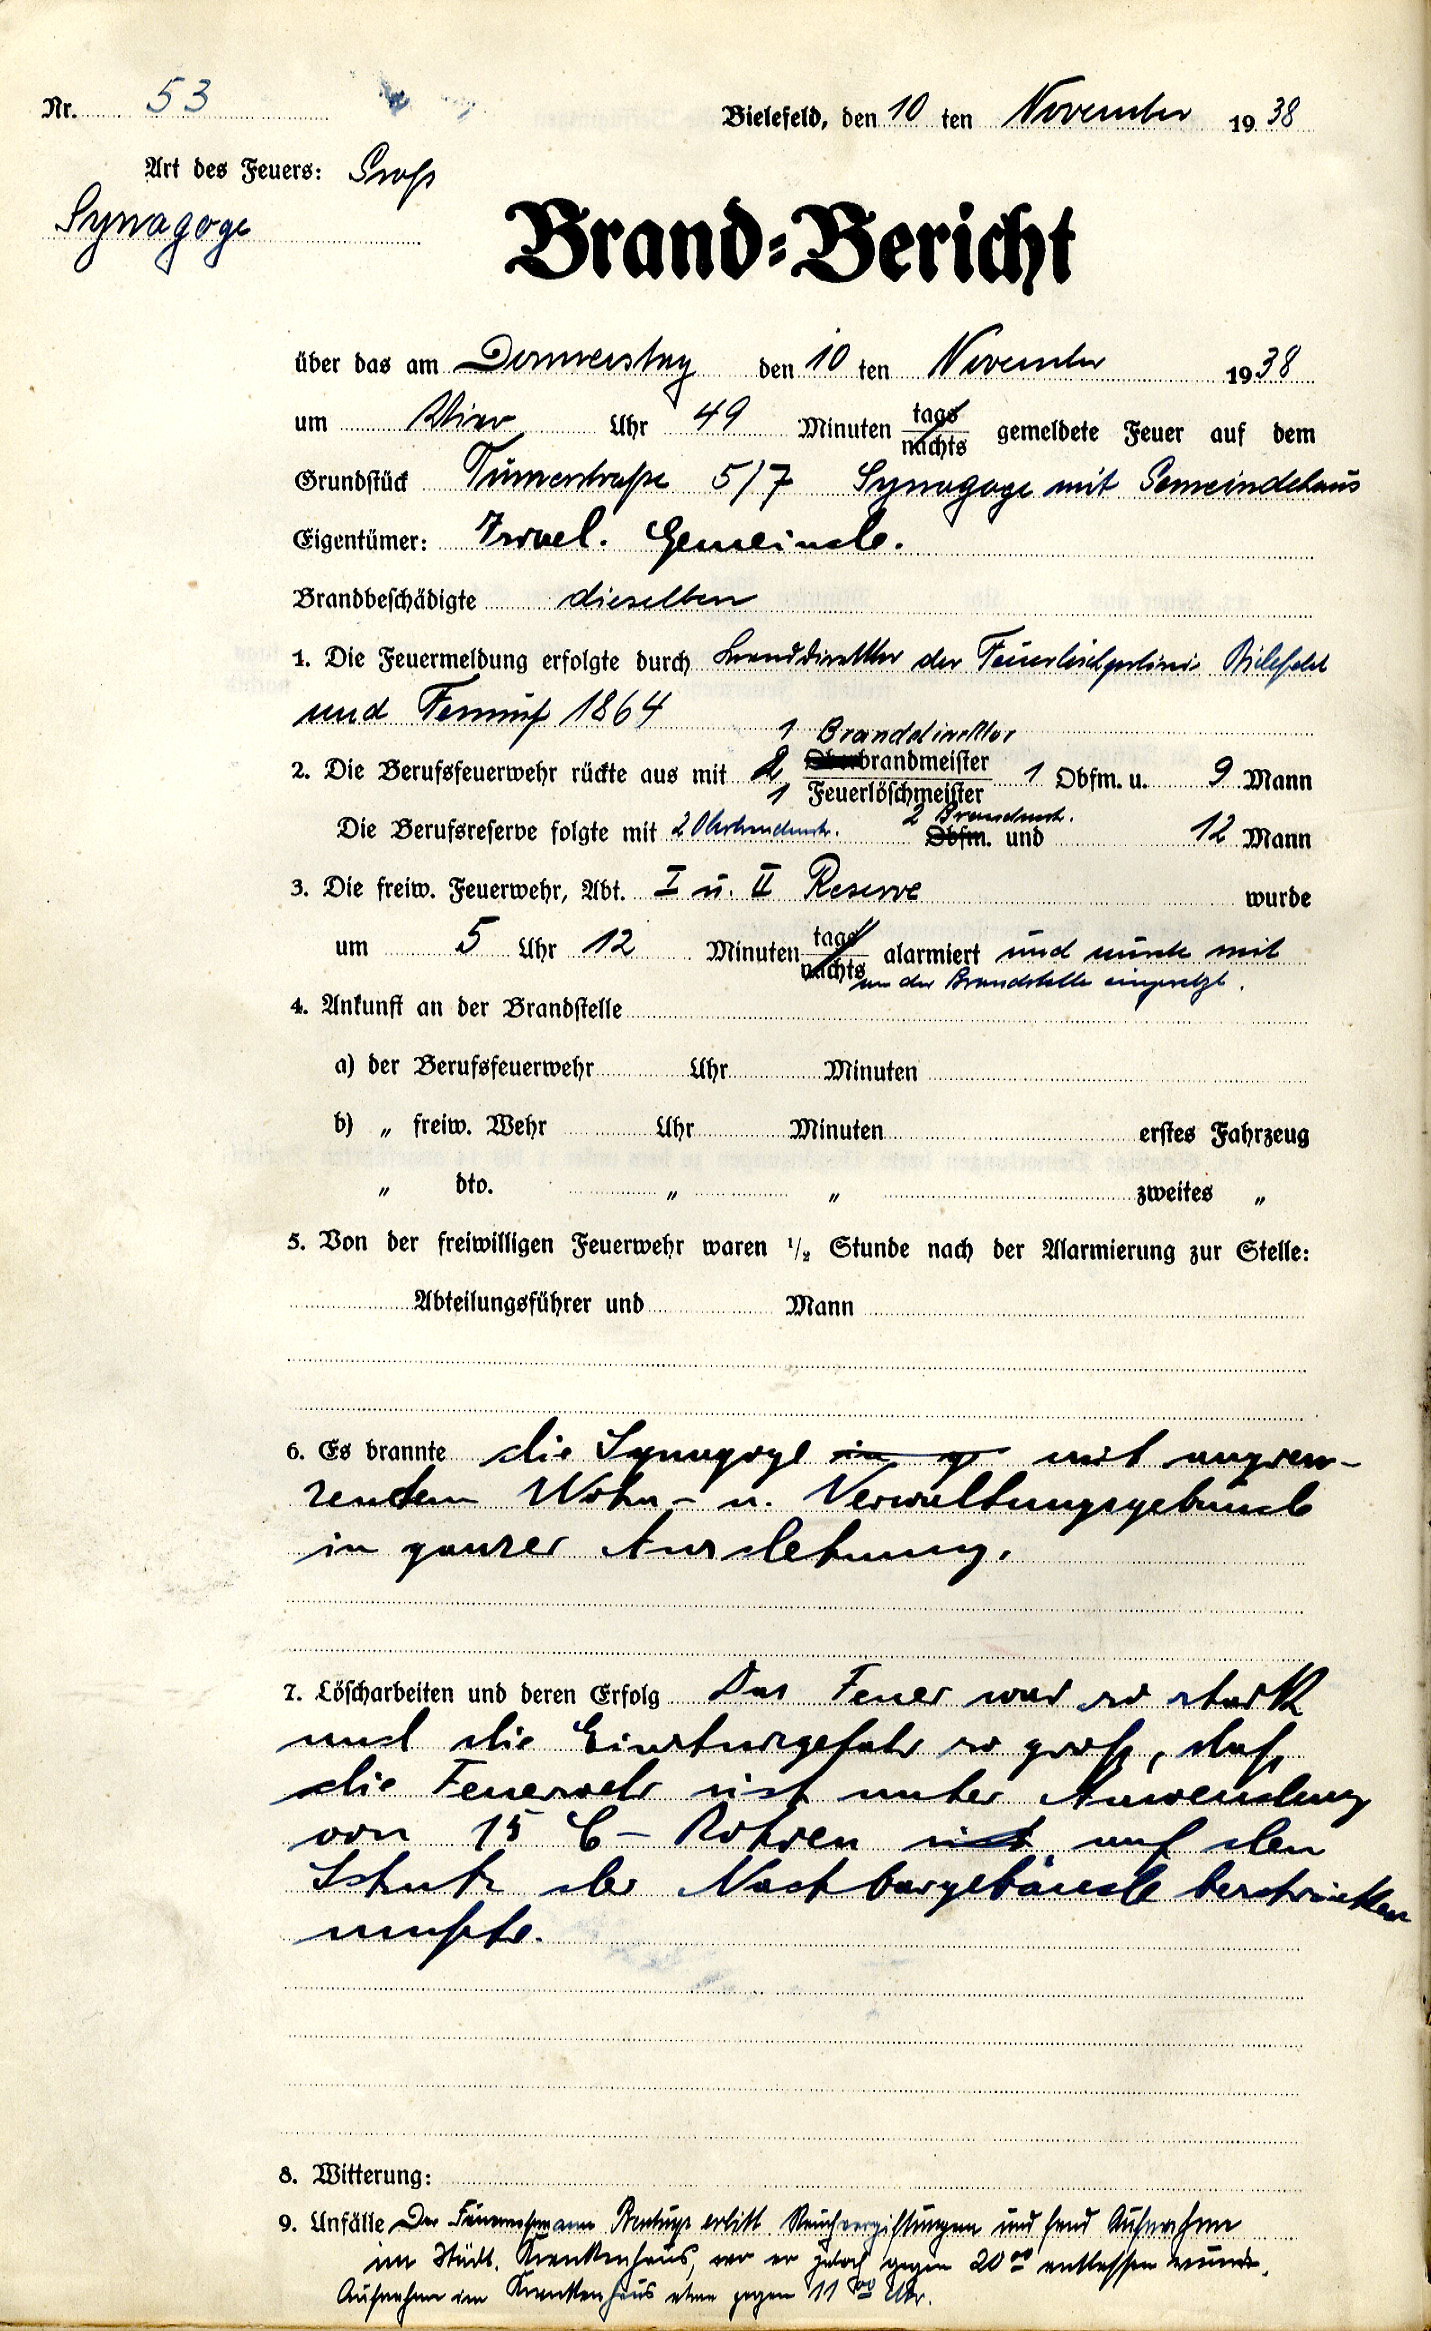 Nr. 53
Bielefeld, den 10 ten November 1938
Art des Feuers: Groß
Synagoge
Brand-Bericht
über das am Donnerstag den 10 ten November 1938
um Vier Uhr 49 Minuten tags/nachts gemeldete Feuer auf dem
Grundstück Turnerstraße 5/7 Synagoge mit Gemeindehaus
Eigentümer: Israel. Gemeinde.
Brandbeschädigte dieselben
1. Die Feuermeldung erfolgte durch Branddirektor der Feuerlöschpolizei Bielefeld
und Fernruf 1864
1 Branddirektor
2. Die Berufsfeuerwehr rückte aus mit 2 Oberbrandmeister 1 Obfm. u. 9 Mann
1 Feuerlöschmeister
2 Brandmstr.
Die Berufsreserve folgte mit 2 Obbrandmstr. Obfm. und 12 Mann
3. Die freiw. Feuerwehr, Abt. I u. II Reserve wurde
um 5 Uhr 12 Minuten tags/nachts alarmiert und wurde mit
an der Brandstelle eingesetzt.
4. Ankunft an der Brandstelle
a) der Berufsfeuerwehr Uhr Minuten
b) „ freiw. Wehr Uhr Minuten erstes Fahrzeug
„ dto. „ „ zweites „
5. Von der freiwilligen Feuerwehr waren 1/2 Stunde nach der Alarmierung zur Stelle:
Abteilungsführer und Mann
6. Es brannte die Synagoge in g mit angren-
zendem Wohn- u. Verwaltungsgebäude
in ganzer Ausdehnung.
7. Löscharbeiten und deren Erfolg Das Feuer war so stark
und die Einsturzgefahr so groß, daß
die Feuerwehr sich unter Anwendung
von 15 C-Rohren sich auf den
Schutz der Nachbargebäude beschränken
mußte.
8. Witterung:
9. Unfälle Der Feuerwehrmann erlitt Rauchvergiftungen und fand Aufnahme
im Städt. Krankenhaus, wo er jedoch gegen 20 00 entlassen wurde.
Aufnahme im Krankenhaus etwa gegen 11 00 Uhr.